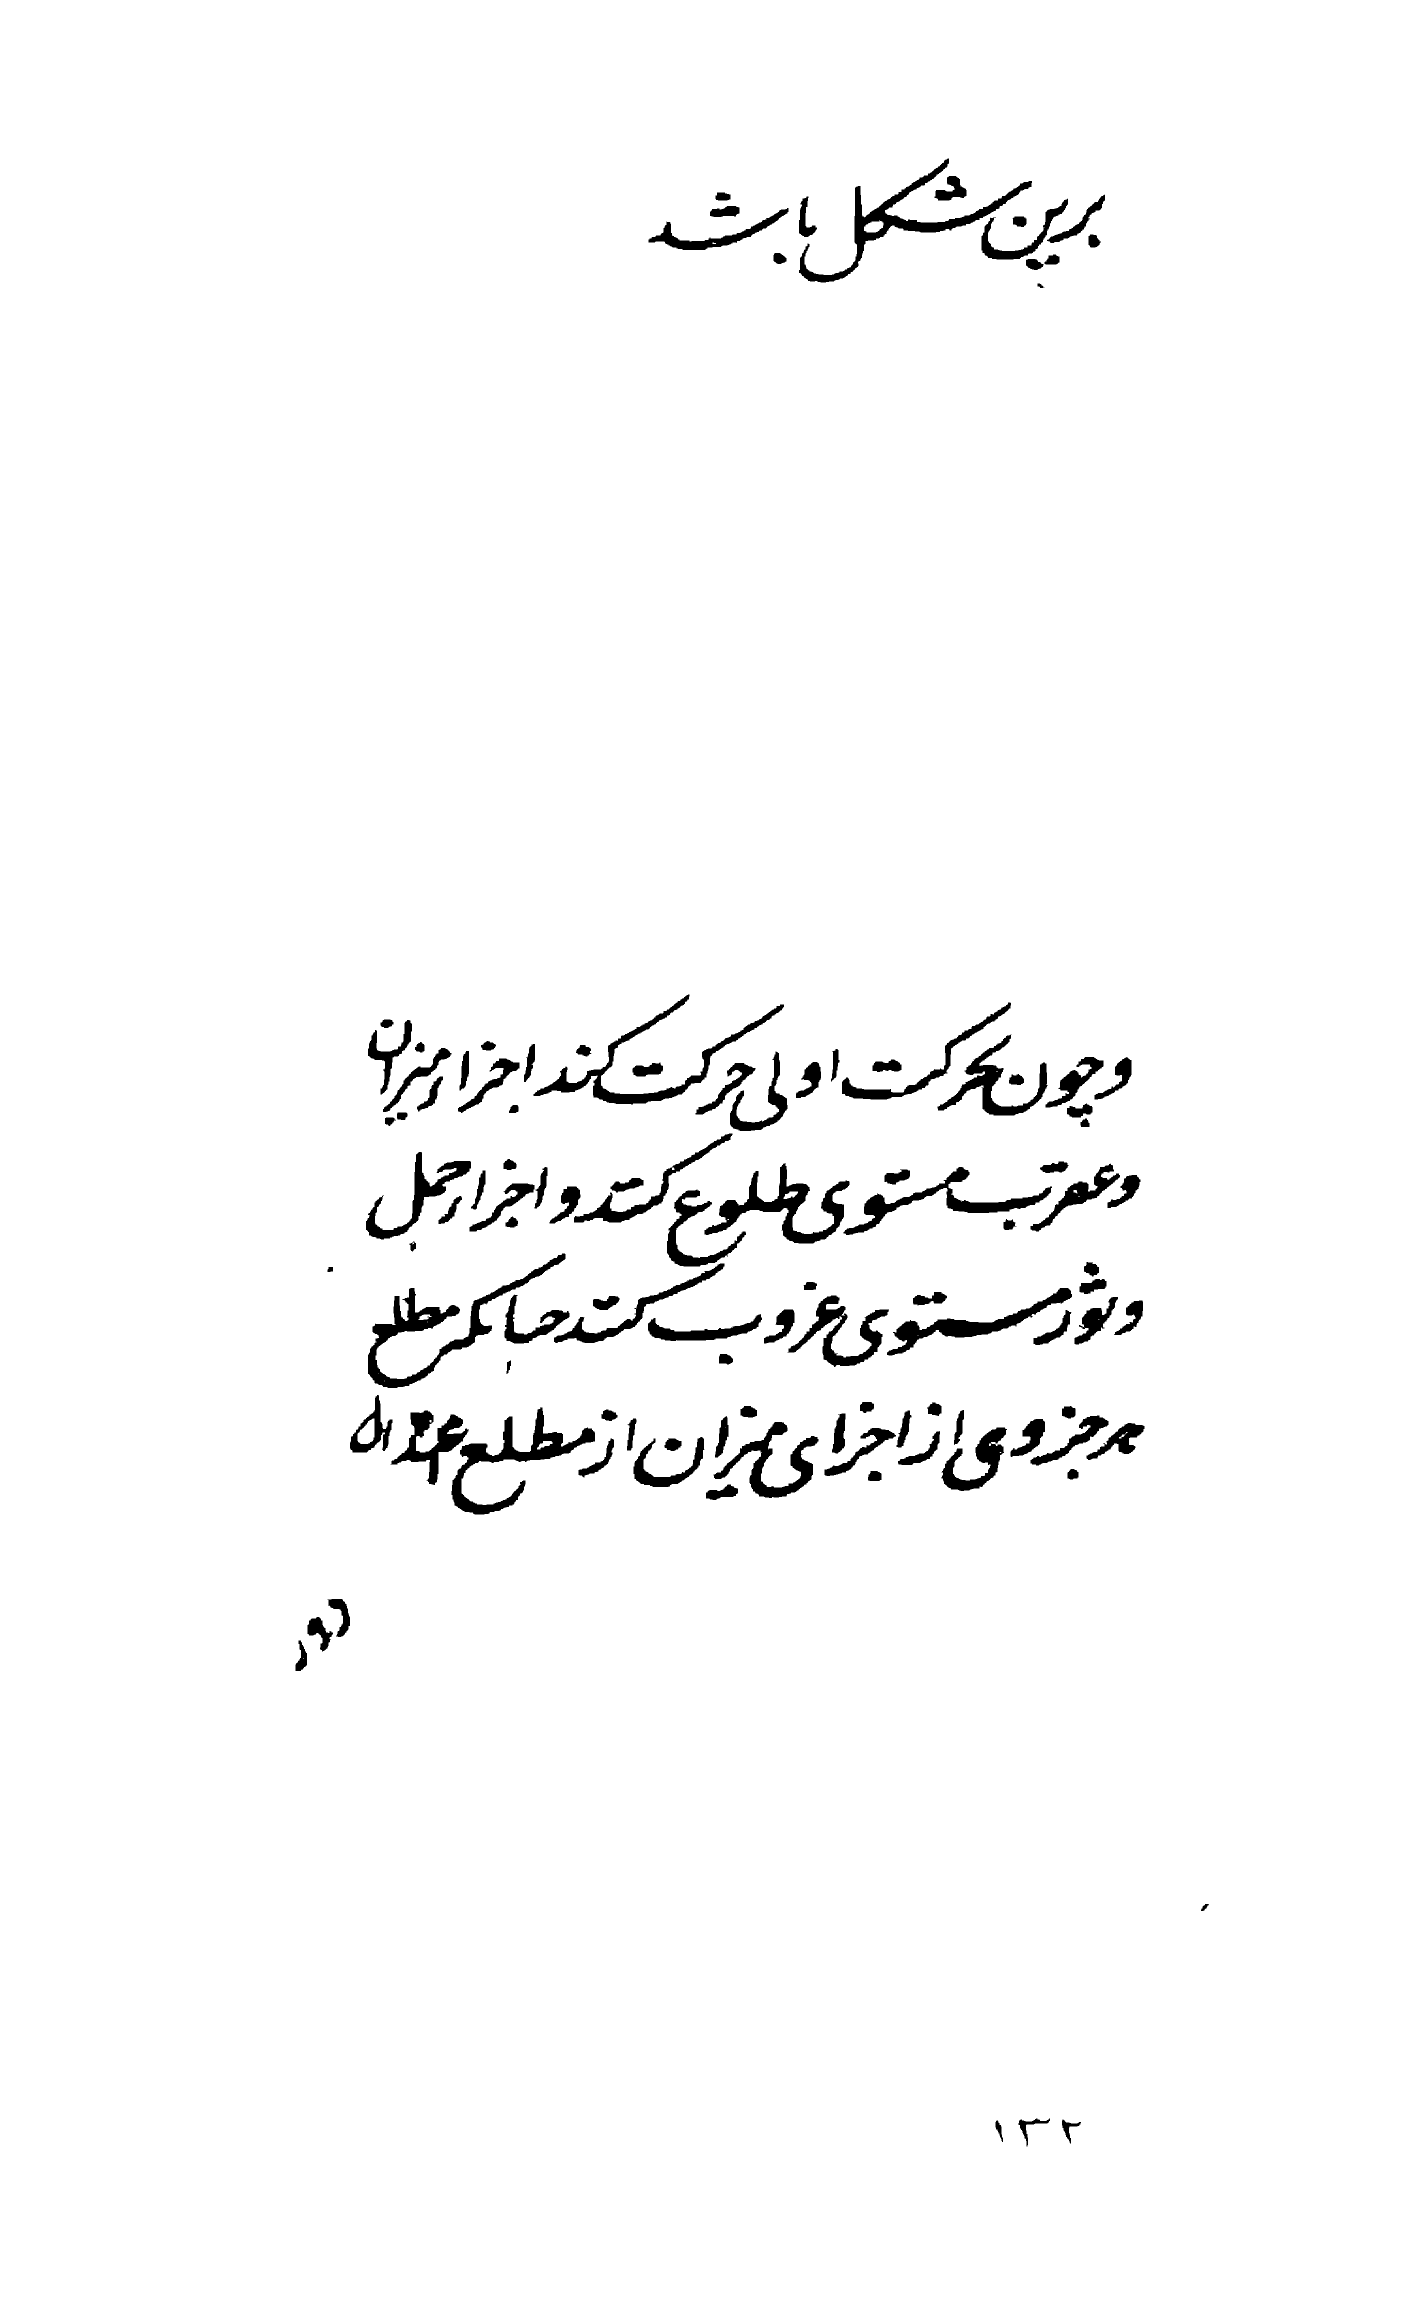 برین شکل باشد
و چون بحرکت اولی حرکت کند اجزاء میزان
و عقرب مستوی طلوع کند و اجزاء حمل
و ثور مستوی غروب کند حنانکه مطلع
هر جزوی از اجزای میزان از مطلع اعتدال
دور
۱۳۲